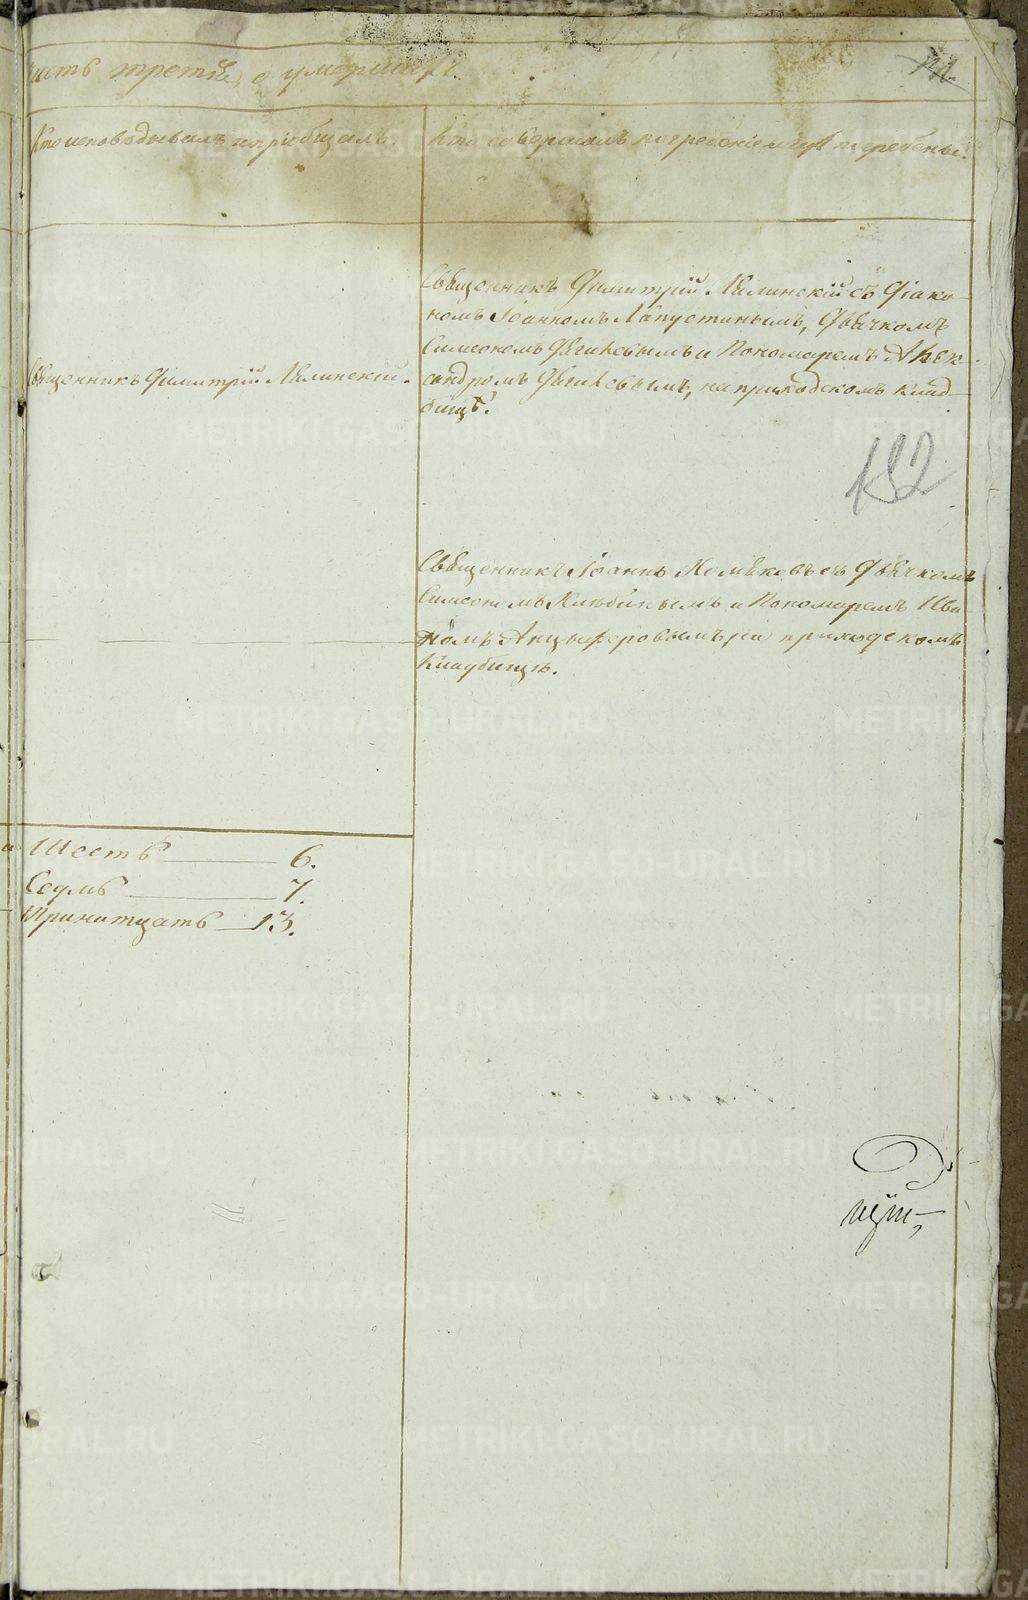 часть третія, о умершихъ.
Кто исповѣдывалъ и пріобщалъ.
Кто совершалъ погребеніе и гдѣ погребены.
Священникъ Димитрій Ляпинскій.
Священникъ Димитрій Ляпинскій съ Діако-
номъ Іоанномъ Капустинымъ, Дьячкомъ
Симеономъ Дягилевымъ и Пономаремъ Алек-
сандромъ Дягилевымъ, на приходскомъ клад-
бищѣ.
192
Священникъ Іоаннъ Хомяковъ съ Дьячкомъ
Симеономъ Хлѣбинымъ и Пономаремъ Ива-
номъ Анцыферовымъ на приходскомъ
Кладбищѣ.
Шесть 6.
Седмь 7.
Тринатцать 13.
METRIKI.GASO-URAL.RU